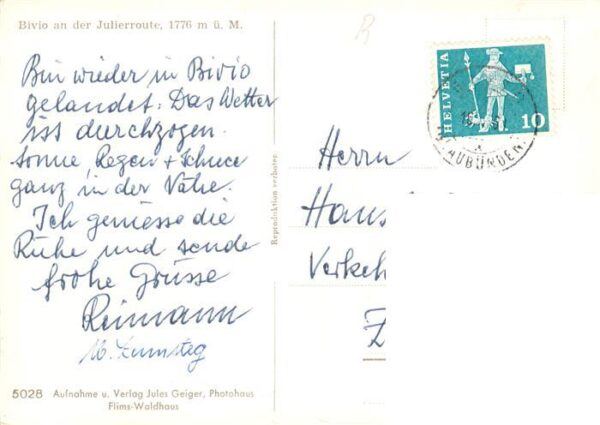 Bivio an der Julierroute, 1776 m ü. M.
Bin wieder in Bivio
gelandet. Das Wetter
ist durchzogen.
Sonne Regen + Schnee
ganz in der Nähe.
Ich geniesse die
Ruhe und sende
frohe Grüsse
Reimann
5028 Aufnahme u. Verlag Jules Geiger, Photohaus
Flims-Waldhaus
Reproduktion verboten
HELVETIA
10
Herrn
Hans
Verkeh
Z